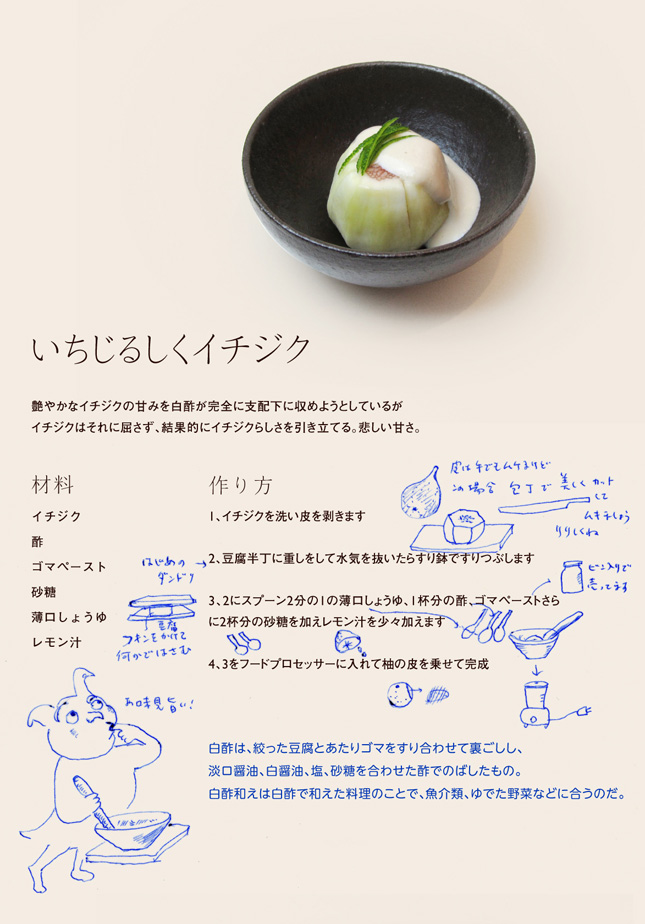 いちじるしくイチジク
艶やかなイチジクの甘みを白酢が完全に支配下に収めようとしているが
イチジクはそれに屈さず、結果的にイチジクらしさを引き立てる。悲しい甘さ。
材料
イチジク
酢
ゴマペースト
砂糖
薄口しょうゆ
レモン汁
作り方
1、イチジクを洗い皮を剥きます
2、豆腐半丁に重しをして水気を抜いたらすり鉢ですりつぶします
3、2にスプーン2分の1の薄口しょうゆ、1杯分の酢、ゴマペーストさら
に2杯分の砂糖を加えレモン汁を少々加えます
4、3をフードプロセッサーに入れて柚の皮を乗せて完成
皮は手でもムケるけど
この場合 包丁で 美しくカット
して
ムキましょう
りりしくね
はじめの
ダンドリ
豆腐
フキンをかけて
何かではさむ
ビン入りで
売ってます
お味見旨い!
白酢は、絞った豆腐とあたりゴマをすり合わせて裏ごしし、
淡口醤油、白醤油、塩、砂糖を合わせた酢でのばしたもの。
白酢和えは白酢で和えた料理のことで、魚介類、ゆでた野菜などに合うのだ。